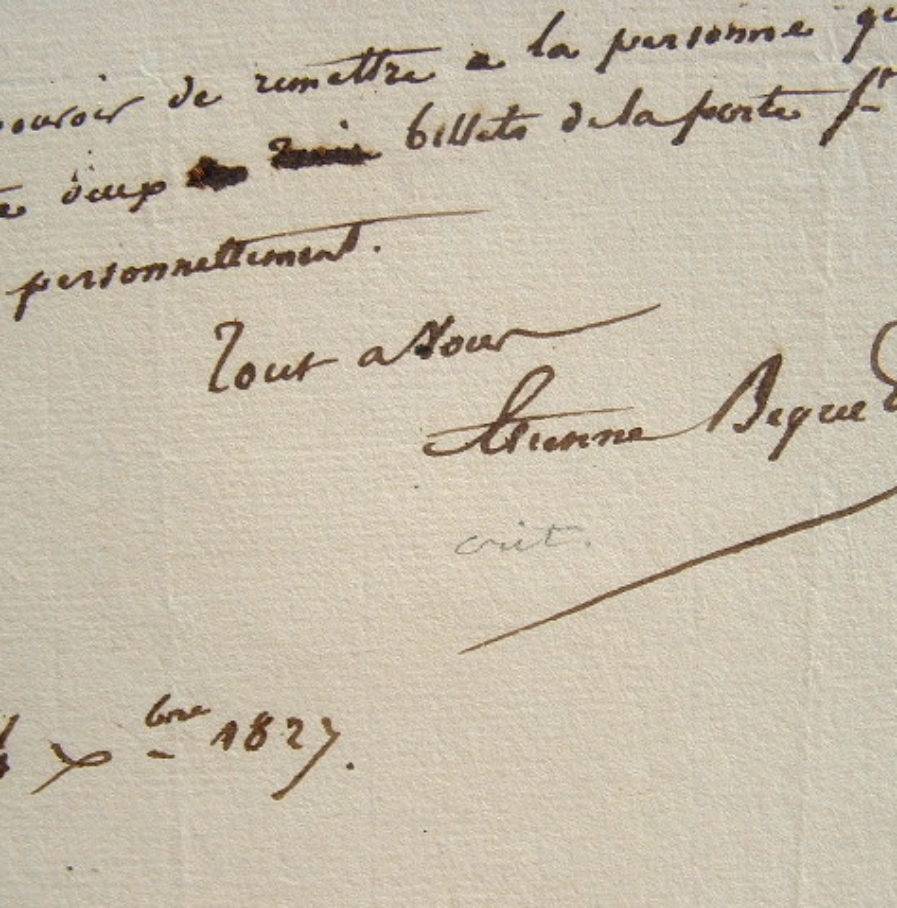 pouvoir de remettre a la personne qu
te deux billets de la porte St
personnellement.
Tout a Vous
Etienne Bequet
crit.
X bre 1827.